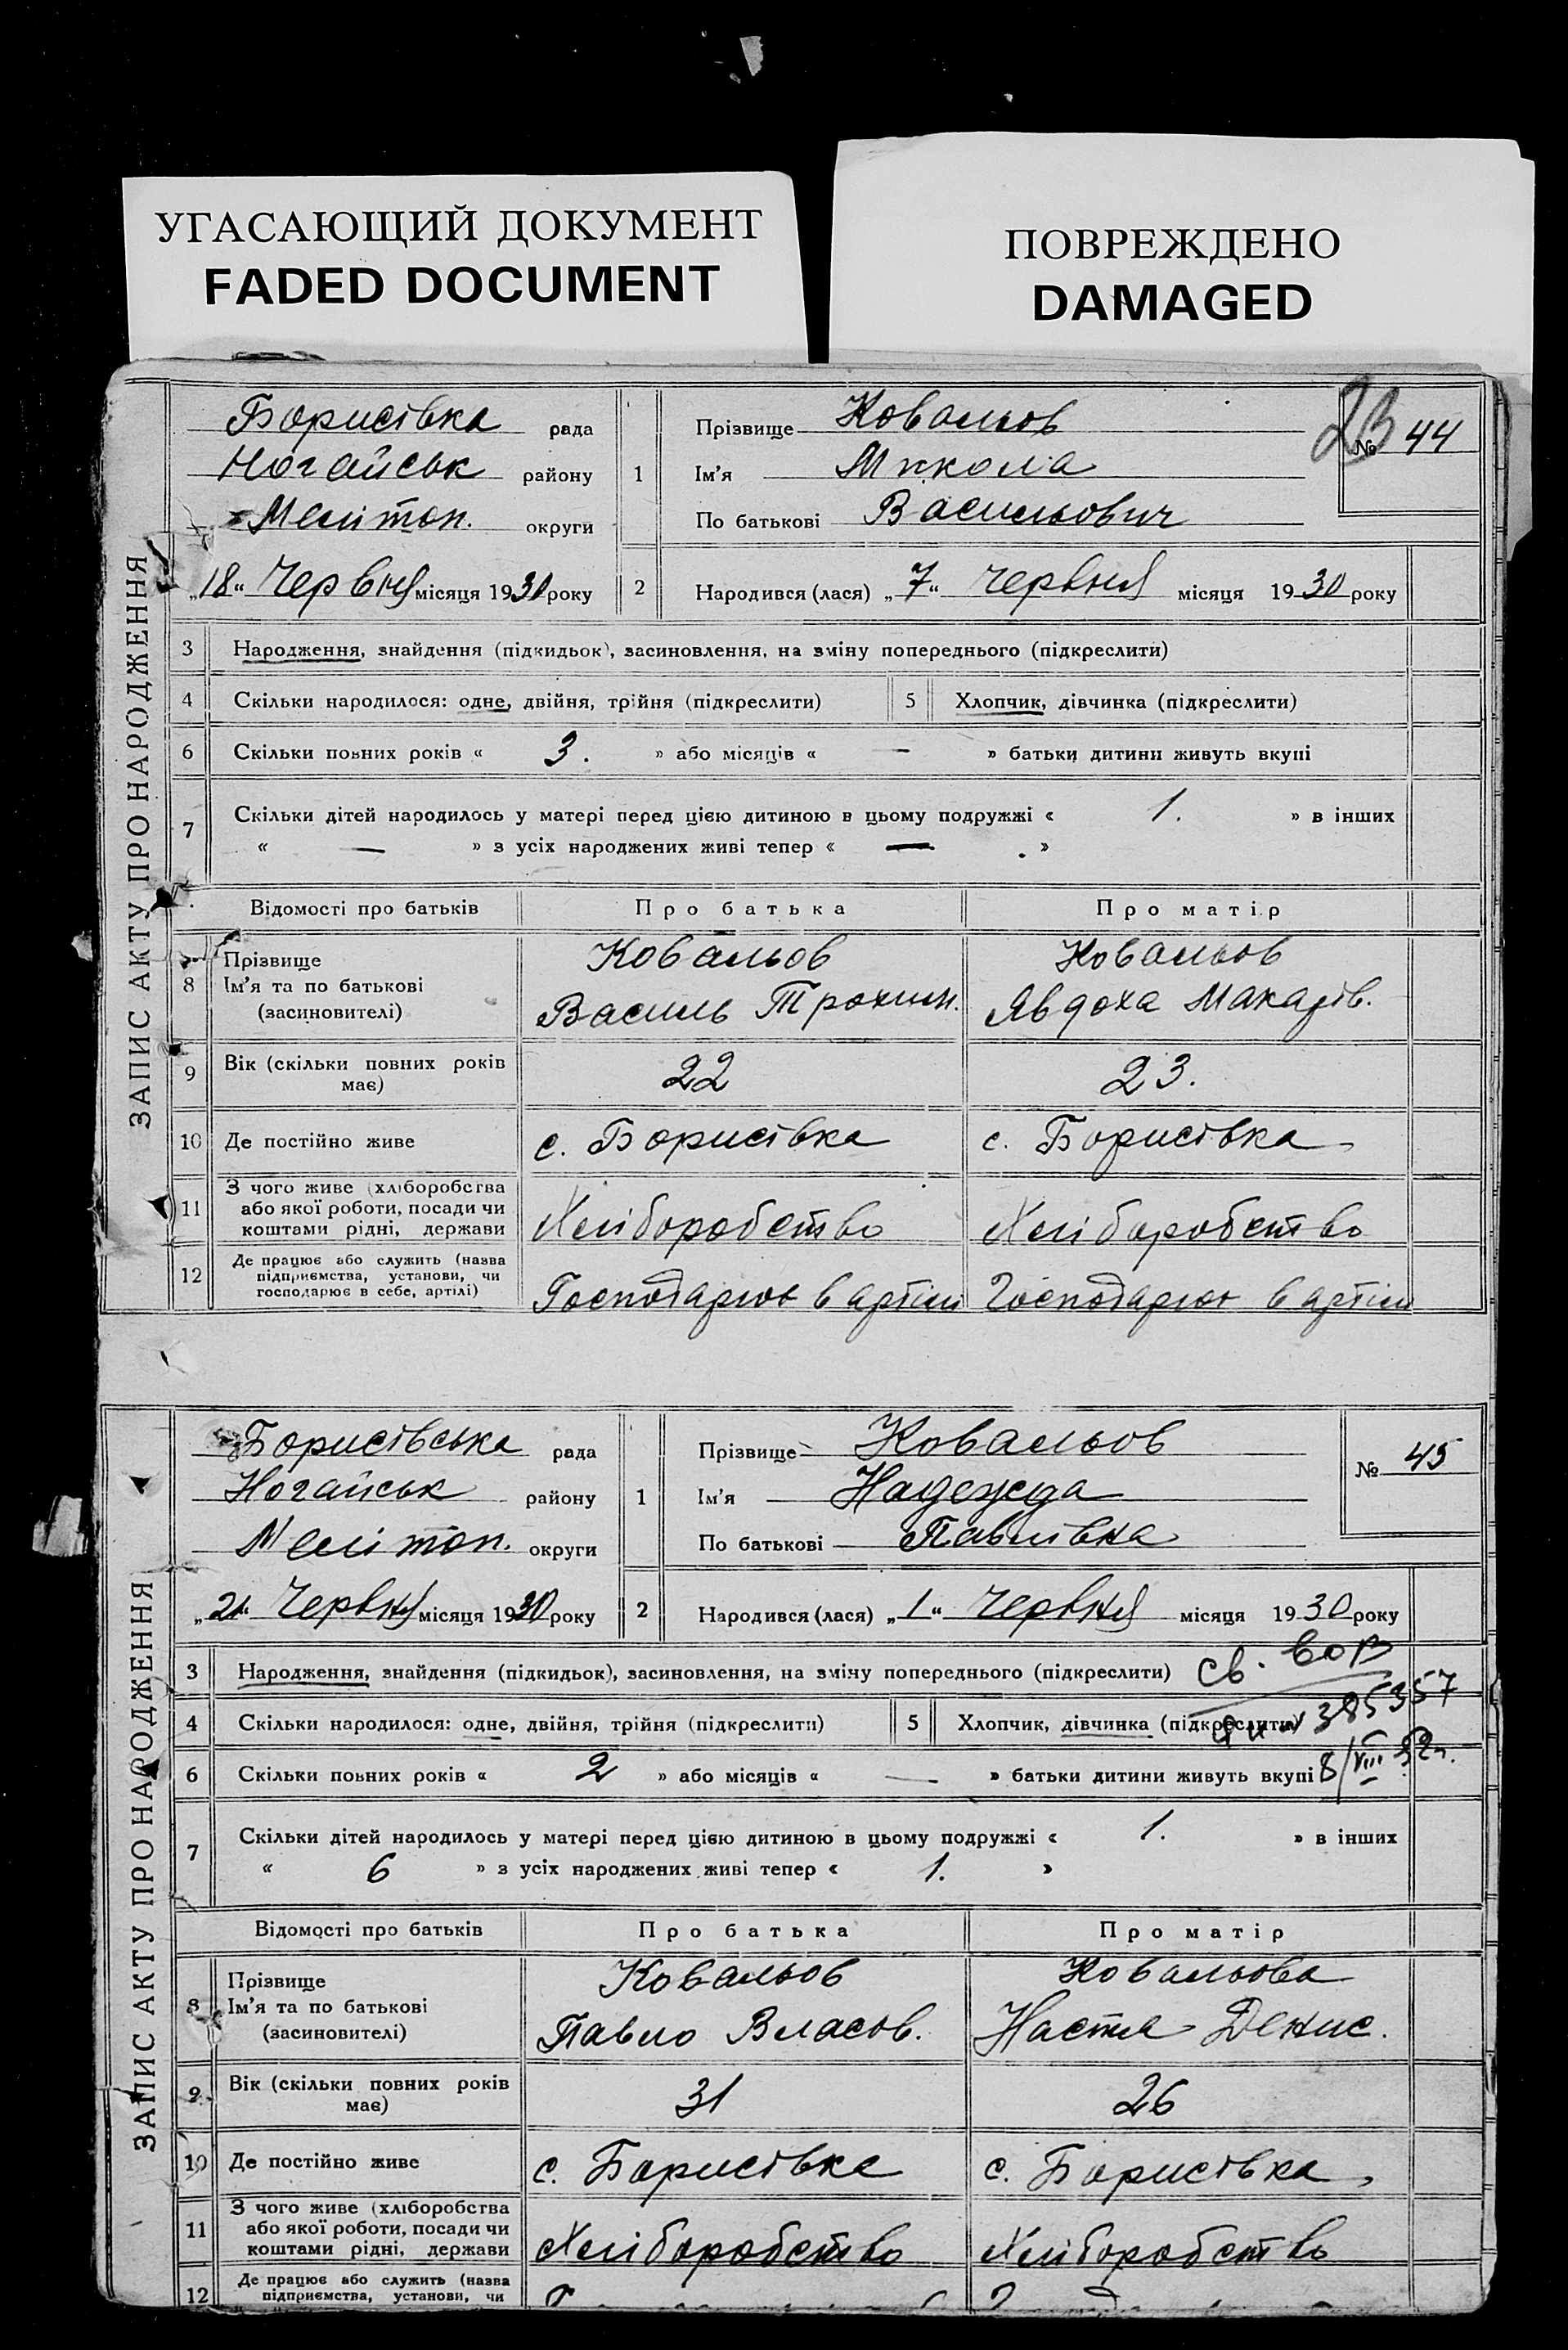 УГАСАЮЩИЙ ДОКУМЕНТ
FADED DOCUMENT
ПОВРЕЖДЕНО
DAMAGED
ЗАПИС АКТУ ПРО НАРОДЖЕННЯ
Борисівка рада
Ногайськ району
Мелітоп. округи
„18“ Червня місяця 1930 року
1
Прізвище Ковальов
Ім'я Микола
По батькові Васильович
23
№ 44
2 Народився (лася) „7“ червня місяця 1930 року
3 Народження, знайдення (підкидьок), засиновлення, на зміну попереднього (підкреслити)
4 Скільки народилося: одне, двійня, трійня (підкреслити) 5 Хлопчик, дівчинка (підкреслити)
6 Скільки повних років « 3. » або місяців « — » батьки дитини живуть вкупі
7 Скільки дітей народилось у матері перед цією дитиною в цьому подружжі « 1. » в інших
« — » з усіх народжених живі тепер « — »
Відомості про батьків Про батька Про матір
8 Прізвище Ковальов Ковальов
Ім'я та по батькові
(засиновителі) Василь Трохим. Явдоха Макарів.
9 Вік (скільки повних років має) 22 23.
10 Де постійно живе с. Борисівка с. Борисівка
11 З чого живе (хліборобства
або якої роботи, посади чи
коштами рідні, держави Хліборобство Хліборобство
12 Де працює або служить (назва
підприємства, установи, чи
господарює в себе, артілі) Господарює в артіли Господарює в артіли
ЗАПИС АКТУ ПРО НАРОДЖЕННЯ
Борисівська рада
Ногайськ району
Мелітоп. округи
„21“ Червня місяця 1930 року
1
Прізвище Ковальов
Ім'я Надежда
По батькові Павлівна
№ 45
2 Народився (лася) „1“ Червня місяця 1930 року
3 Народження, знайдення (підкидьок), засиновлення, на зміну попереднього (підкреслити)
св.
4 Скільки народилося: одне, двійня, трійня (підкреслити) 5 Хлопчик, дівчинка (підкреслити)
385357
6 Скільки повних років « 2 » або місяців « — » батьки дитини живуть вкупі
8/VIII 52г.
7 Скільки дітей народилось у матері перед цією дитиною в цьому подружжі « 1. » в інших
« 6 » з усіх народжених живі тепер « 1. »
Відомості про батьків Про батька Про матір
8 Прізвище Ковальов Ковальова
Ім'я та по батькові
(засиновителі) Павло Власов. Настя Денис.
9 Вік (скільки повних років має) 31 26
10 Де постійно живе с. Борисівка с. Борисівка
11 З чого живе (хліборобства
або якої роботи, посади чи
коштами рідні, держави Хліборобство Хліборобство
12 Де працює або служить (назва
підприємства, установи, чи